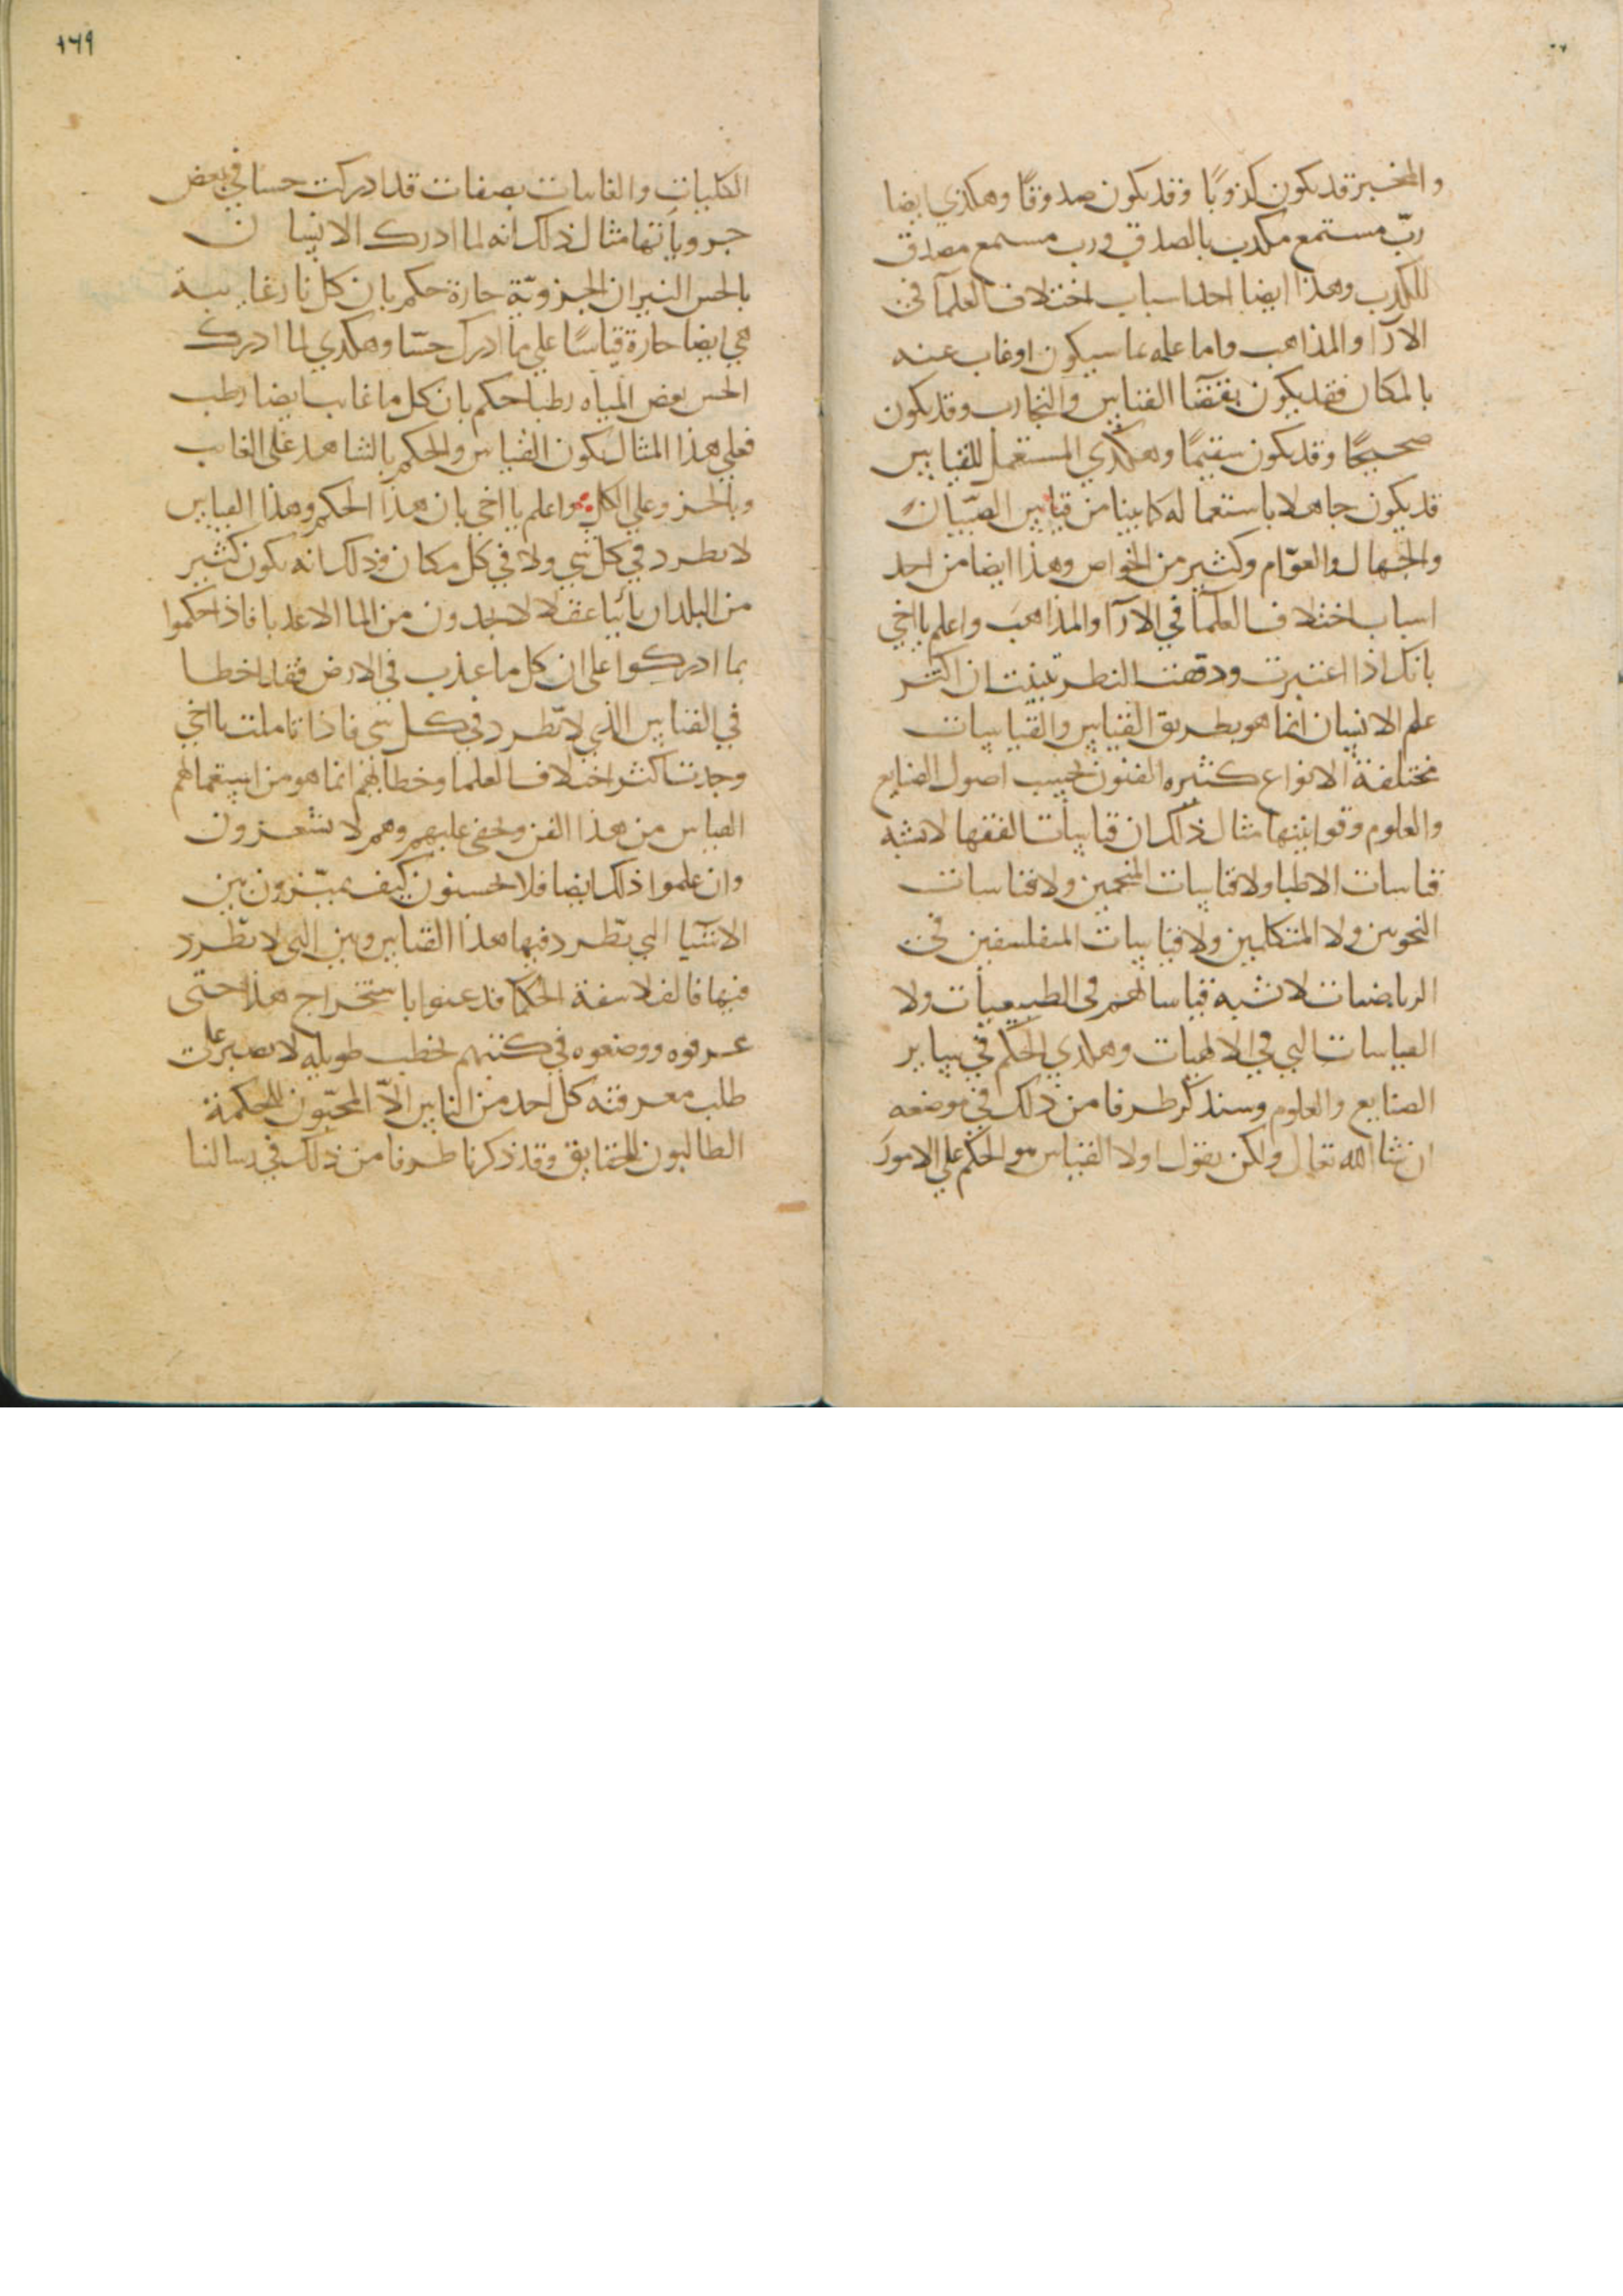 والمخبر قد يكون كذوبًا وقد يكون صدوقًا وهكذي ايضا
ربّ مستمع مكذب بالصدق ورب مستمع مصدق
للكذب وهذا ايضا احد اسباب اختلاف العلمآ في
الارآ والمذاهب واما علمه بما سيكون او غاب عنه
بالمكان فقد يكون القياس والتجارب وقد يكون
صحيحًا وقد يكون سقيمًا وهكذي المستعمل للقياس
قد يكون جاهلا باستعماله كما بينا من قياس الصّبيان
والجهال والعوّام وكثير من الخواص وهذا ايضا من احد
اسباب اختلاف العلمآ في الارآ والمذاهب واعلم يا اخي
بانك اذا اعتبرت ودققت النظر تبينت ان اكثر
علم الانسان انما هو بطريق القياس والقياسات
مختلفة الانواع كثيره الفنون بحسب اصول الصنايع
والعلوم وقوانينها مثال ذلك ان قياسات الفقها لا تشبه
قياسات الاطبا ولا قياسات المنجمين ولا قياسات
النحويين ولا المتكلمين ولا قياسات المتفلسفين في
الرياضيات لا تشبه قياساتهم في الطبيعيات ولا
القياسات التي في الالهيات وهكذي الحكم في سائر
الصنايع والعلوم وسنذكر طرفا من ذلك في موضعه
ان شا الله تعالى ولكن نقول اولا القياس هو الحكم على الامور
١٦٩
الكليات والغايبات بصفات قد ادركت حسا في بعض
جزوياتها مثال ذلك انه لما ادرك الانسان
بالحس النيران الجزويّة حارة حكم بان كل نار غايبة
هي ايضا حارة قياسًا على ما ادرك حسّا وهكذي لما ادرك
الحس بعض المياه رطبا حكم بان كل ما غايب ايضا رطب
فعلي هذا المثال يكون القياس والحكم بالشاهد على الغايب
وبالجزو علي الكل واعلم يا اخي بان هذا الحكم وهذا القياس
لا يطرد في كل شي ولا في كل مكان وذلك انه يكون كثير
من البلدان عقلا لا يجدون من الما الا عذبا فاذا حكموا
بما ادركوا على ان كل ما عذب في الارض فقد اخطا
في القياس الذي لا تطرد في كل شي فاذا تاملت يا اخي
وجدت اكثر اختلاف العلما وخطائهم انما هو من استعمالهم
القياس من هذا الفن وخفي عليهم وهم لا يشعرون
وان علموا ذلك ايضا فلا يحسنون كيف يميّزون بين
الاشيآ التي تطّرد فيها هذا القياس وبين التي لا تطّرد
فيها فالفلاسفة الحكما قد عنوا باستخراج هذا حتى
عرفوه ووضعوه في كتبهم بخطب طويله لا يصبر على
طلب معرفته كل احد من الناس الاّ المحبّون للحكمة
الطالبون للحقايق وقد ذكرنا طرفا من ذلك في رسالنا